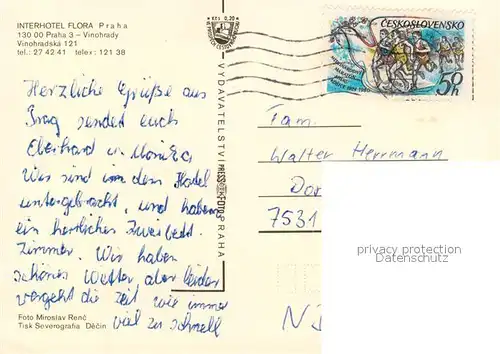 INTERHOTEL FLORA Praha
130 00 Praha 3 – Vinohrady
Vinohradská 121
tel.: 27 42 41 telex: 121 38
Kčs 0,20
ČESKOSLOVENSKO
50h
Herzliche Grüße aus
Prag sendet euch
Eberhard u. Monika
Wir sind in dem Hotel
untergebracht, und haben
ein herrliches Zweibett.
Zimmer. Wir haben
schönes Wetter aber leider
vergeht die Zeit wie immer
viel zu schnell
Foto Miroslav Renč
Tisk Severografia Děčín
VYDAVATELSTVÍ PRESSFOTO PRAHA
Fam.
Walter Herrmann
Dor
7531
privacy protection
Datenschutz